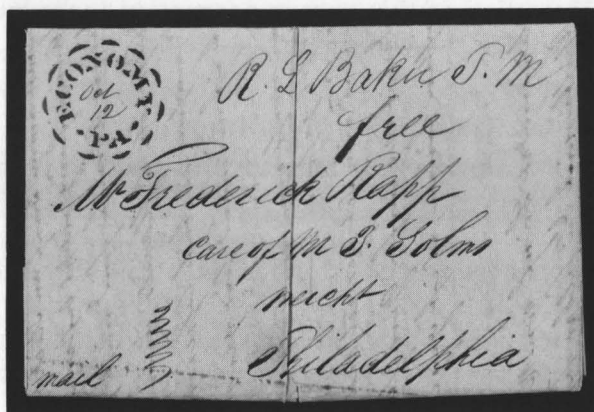 ECONOMY
Oct
12
PA.
R. L Baker P. M
free
Mr Frederick Rapp
care of M J. Solms
mercht
Philadelphia
mail